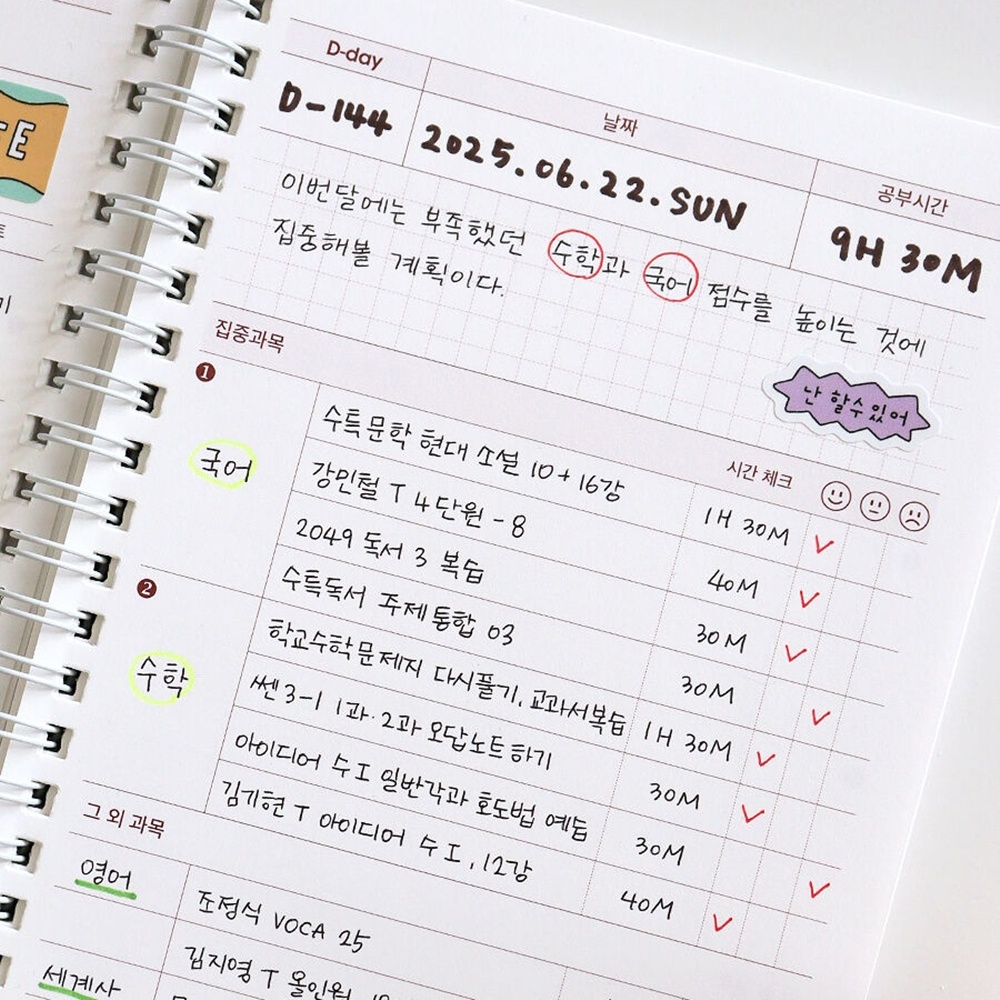 D-day
날짜
공부시간
D-144
2025.06.22.SUN
9H 30M
이번달에는 부족했던 수학과 국어 점수를 높이는 것에
집중해볼 계획이다.
난 할수있어
집중과목
시간 체크
1
국어
수특문학 현대 소설 10+16강
1H 30M
강민철 T 4단원 -8
40M
2049 독서 3 복습
30M
수특독서 주제통합 03
30M
2
수학
학교수학문제지 다시풀기, 교과서복습
1H 30M
쎈 3-1 1과·2과 오답노트하기
30M
아이디어 수Ⅰ 일반각과 호도법 예습
30M
김기현 T 아이디어 수Ⅰ, 12강
40M
그 외 과목
영어
조정식 VOCA 25
세계사
김지영 T 올인원